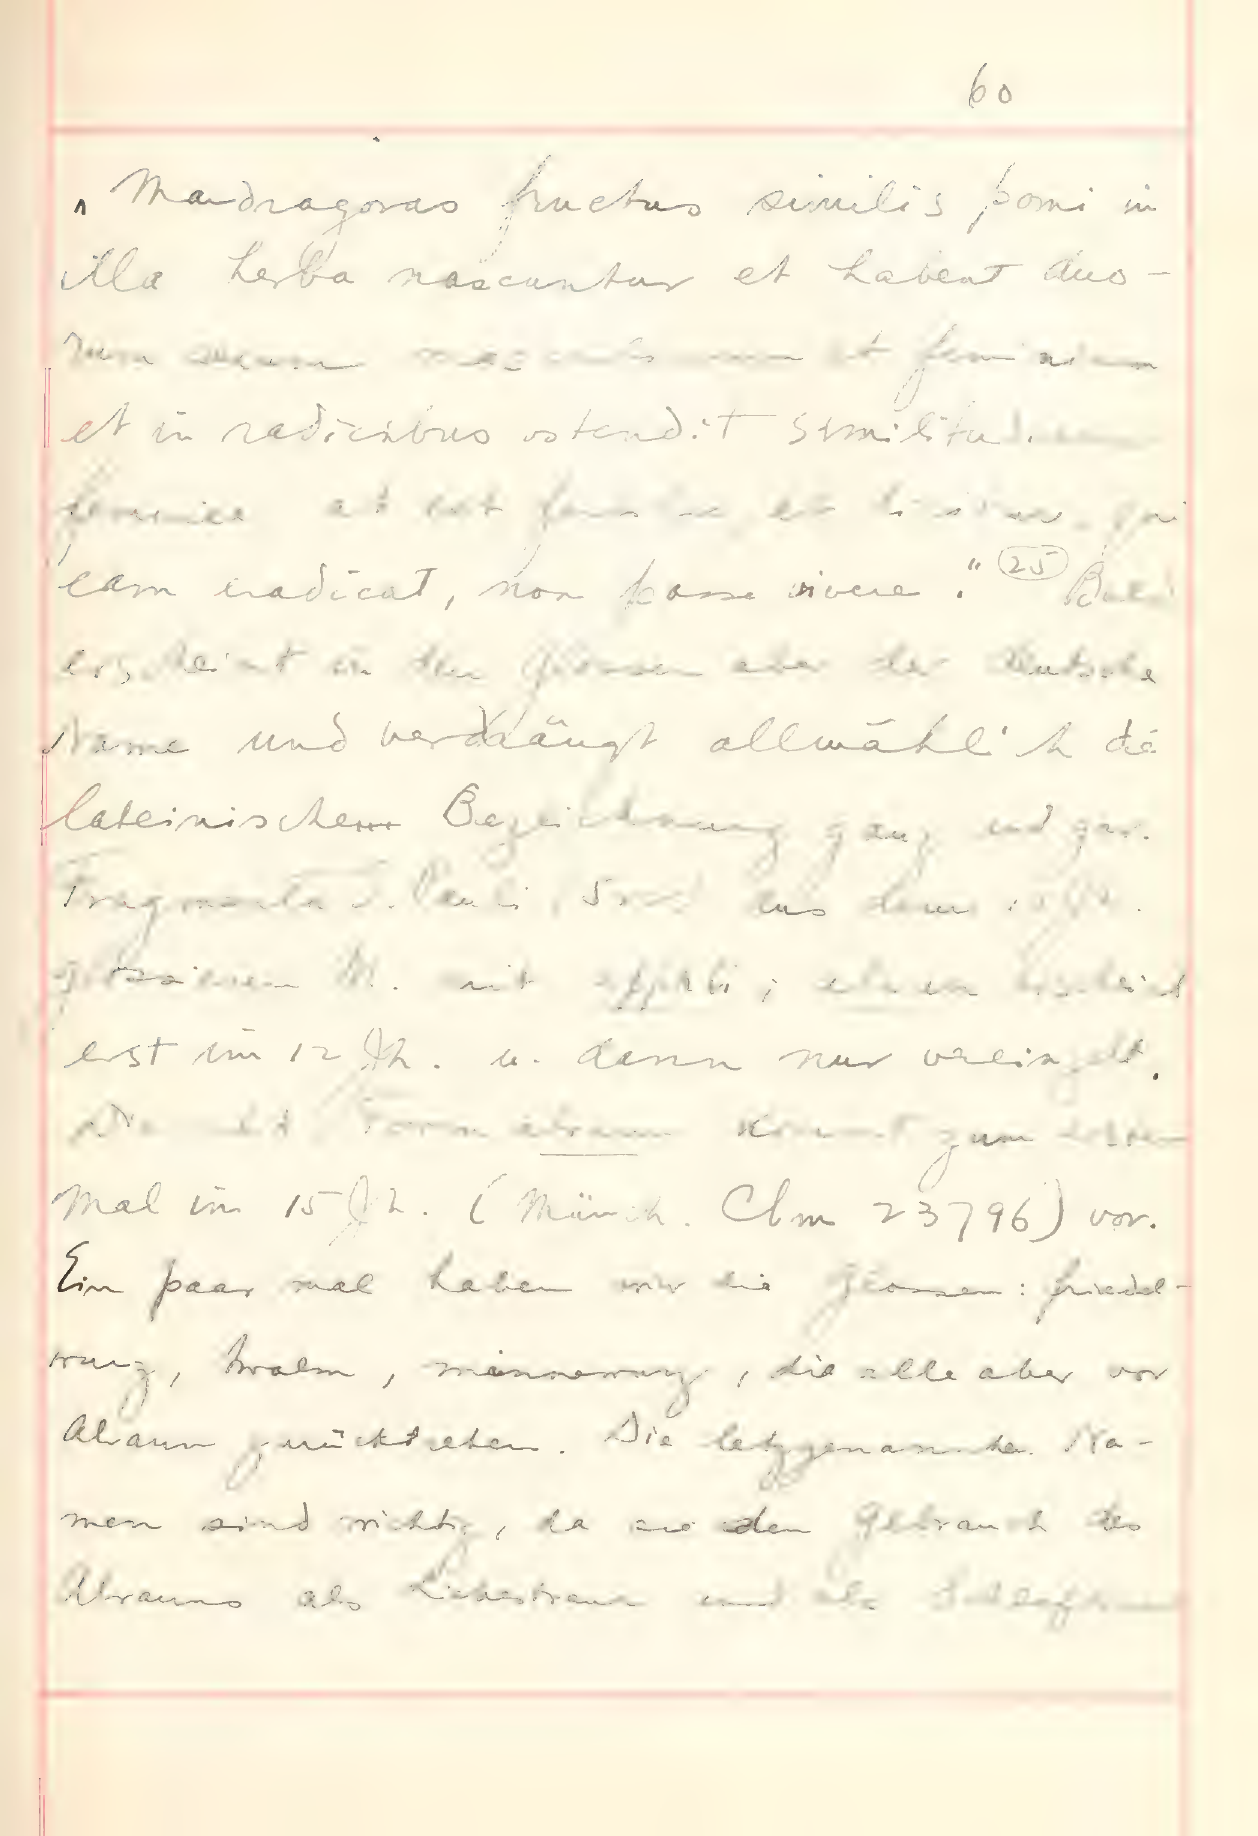 60
„Mandragoras fructus similis pomi in
illa herba nascuntur et habent duo-
rum et feminam
et in radicibus ostendit similitudinem
feminee et est qui
eam eradicat, non posse vivere." (25) Bald
erscheint in den Glossen aber der deutsche
Name und verdrängt allmählich die
lateinische Bezeichnung ganz und gar.
Fragmenta S. Pauli, aus dem Jh.
glossieren M. mit ; erscheint
erst im 12 Jh. u. dann nur vereinzelt.
Die Form alraun kommt zum ersten
Mal im 15 Jh. (Münch. Clm 23796) vor.
Ein paar mal haben wir die Glossen: friedel-
wurz, twalm, minnewurz, die alle aber vor
Alraun zurücktreten. Die letzgenannten Na-
men sind richtig, da sie den Gebrauch des
Alrauns als Liebestrank und als Schlaftrunk